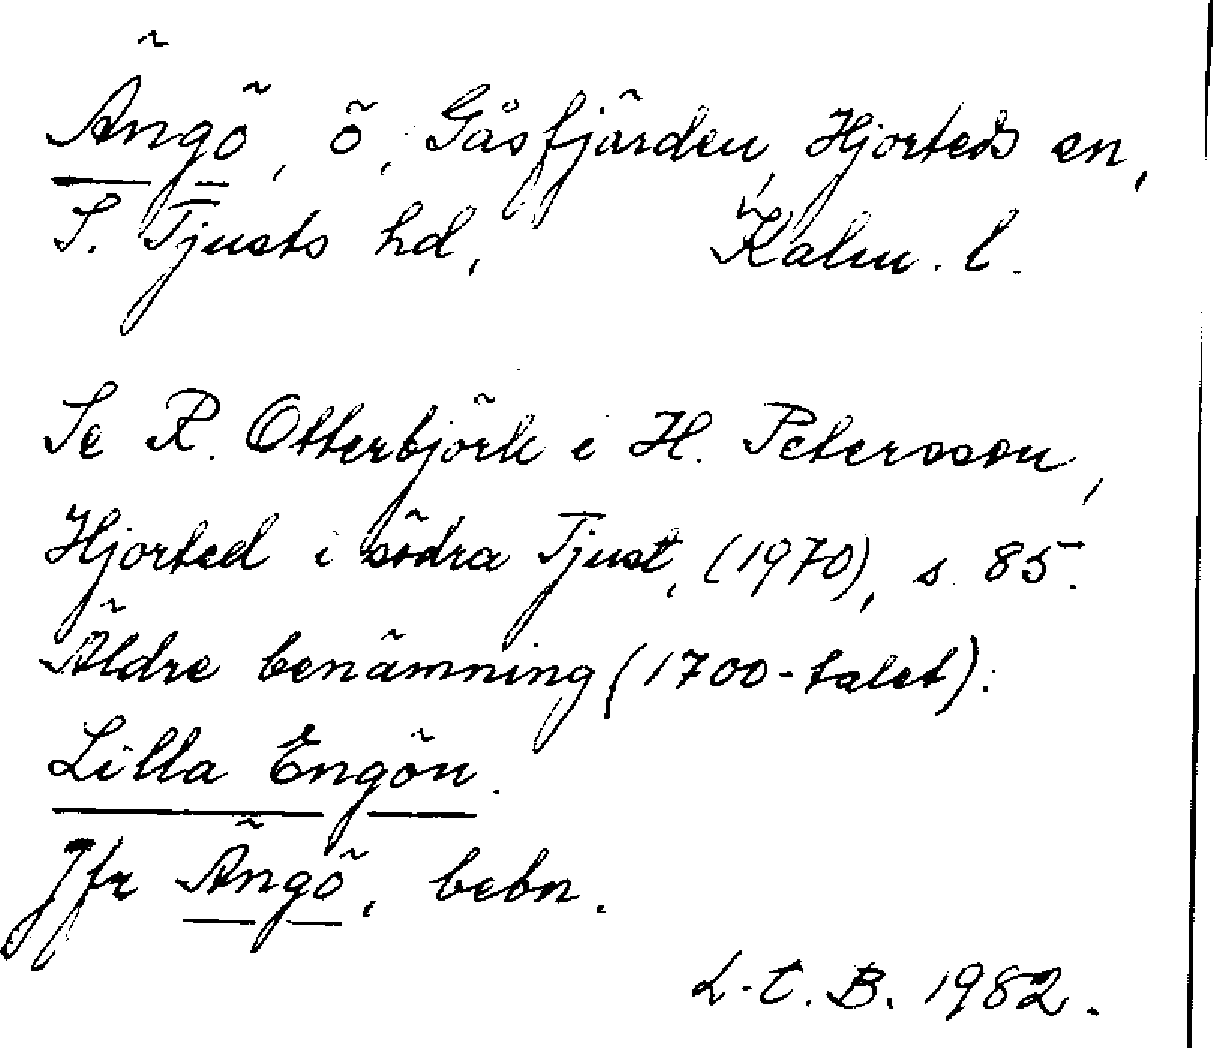 Ängö, ö, Gåsfjärden, Hjorteds sn,
S. Tjusts hd, Kalm. l.
Se R. Otterbjörk i H. Petersson,
Hjorted i södra Tjust, (1970), s. 85.
Äldre benämning (1700-talet):
Lilla Engön.
Jfr Ängö, bebn.
L.C.B. 1982.